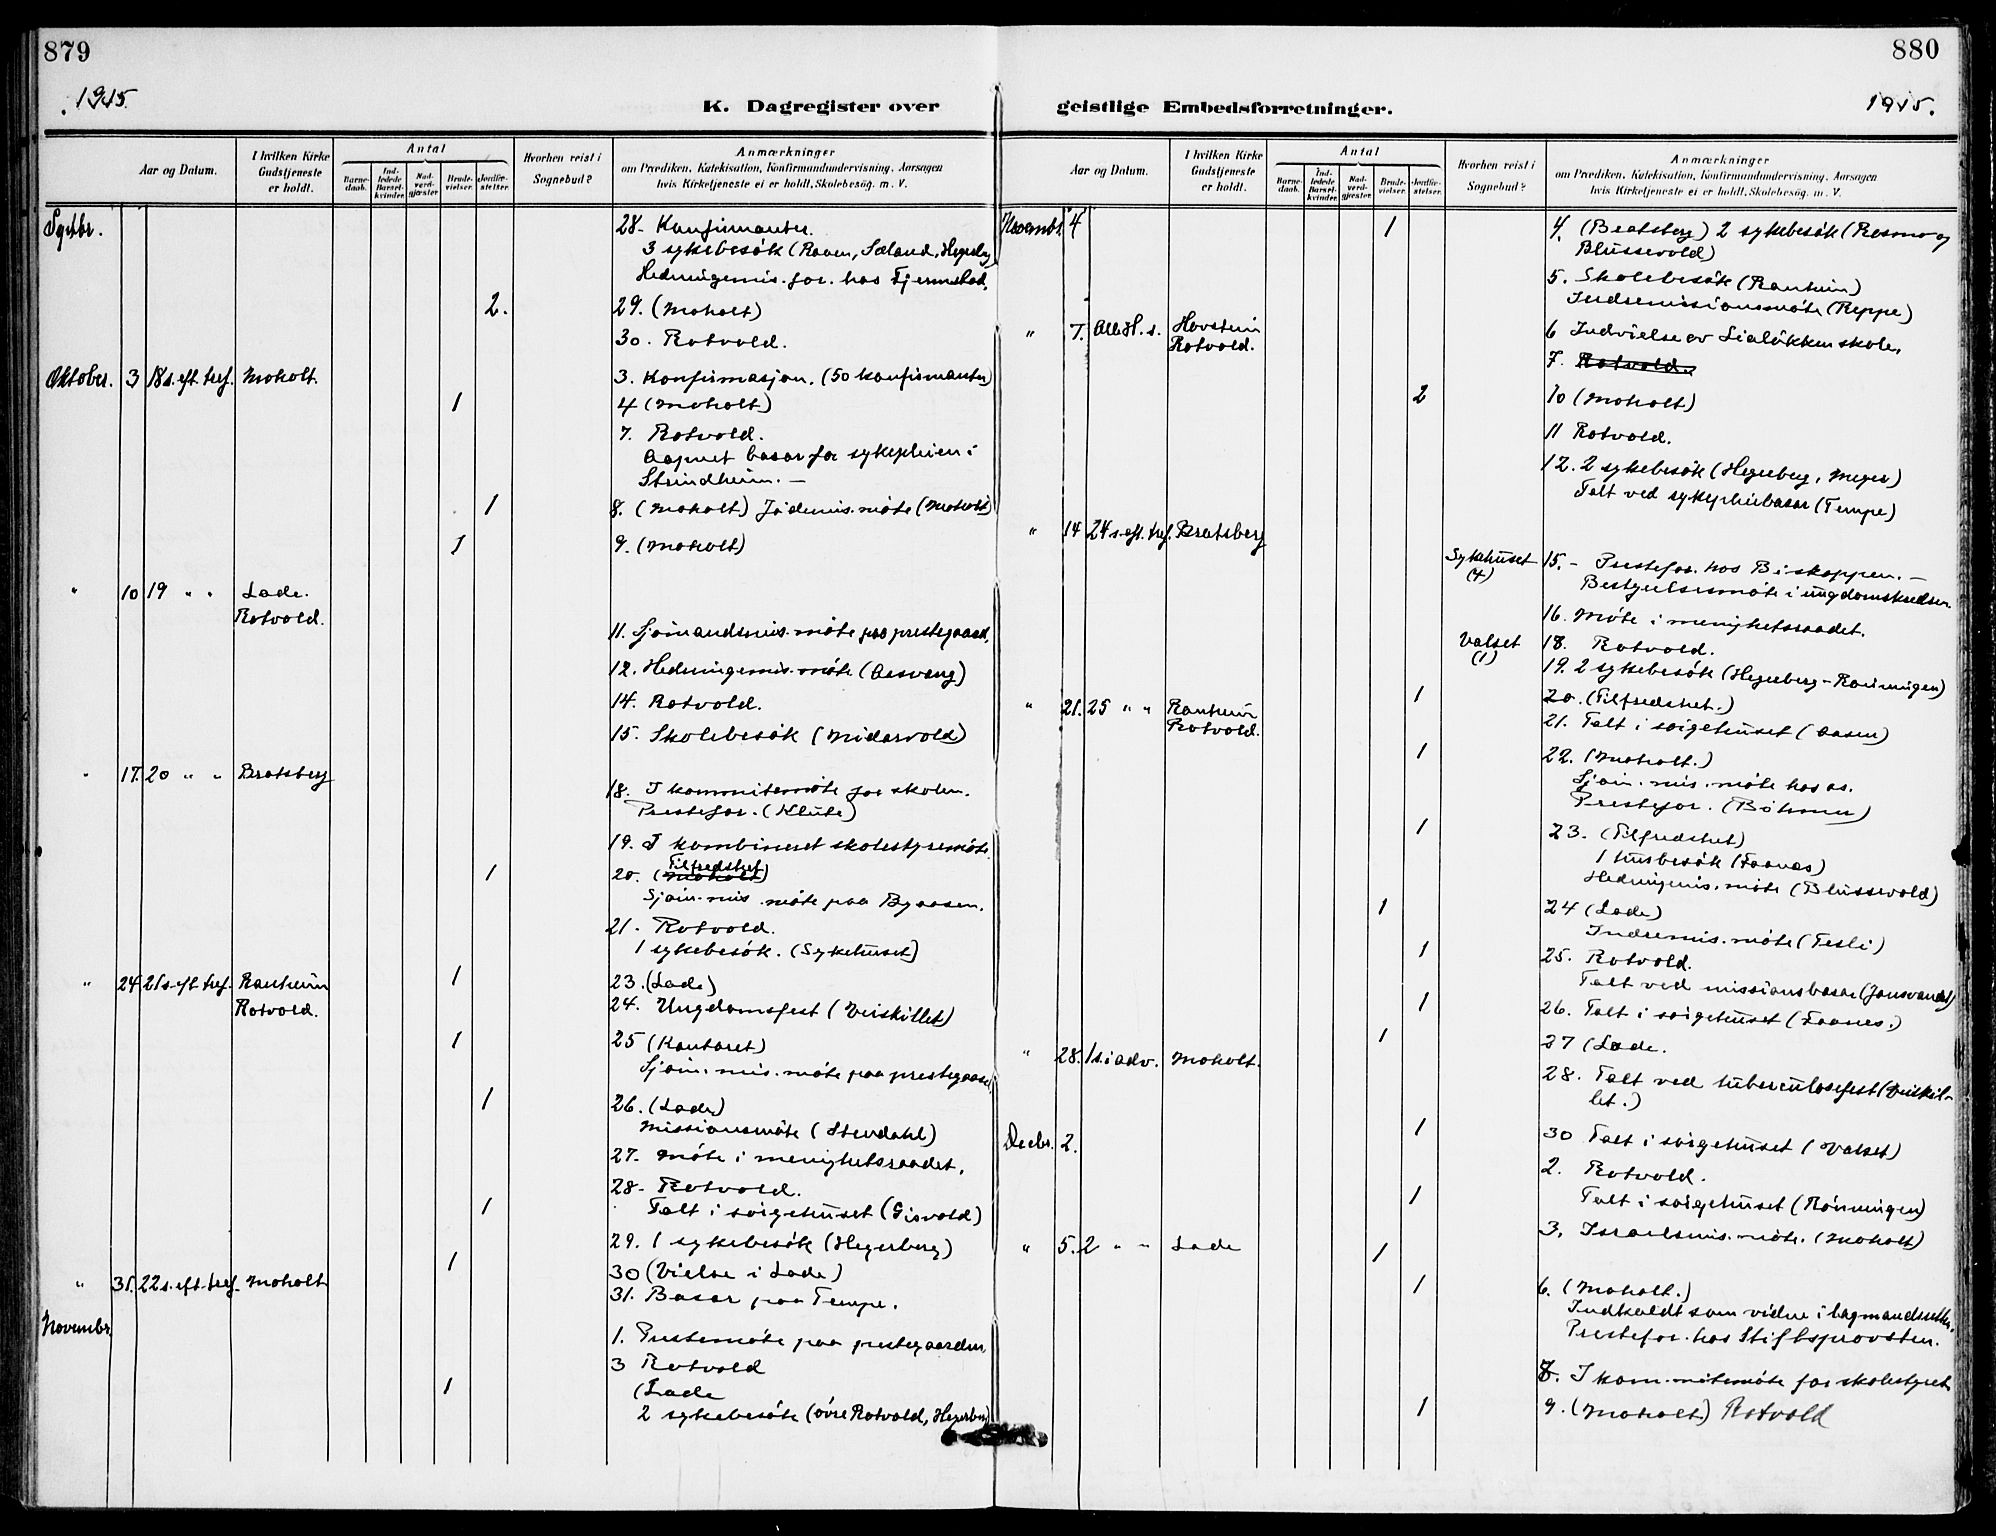 879
1915.
K. Dagregister over
Aar og Datum.
I hvilken Kirke Gudstjeneste er holdt.
Antal
Barne-daab.
Ind-ledede Barsel-kvinder.
Nad-verd-gjæster
Brude-vielser.
Jordfæ-stelser.
Hvorhen reist i Sognebud?
Anmærkninger
om Prædiken, Katekisation, Konfirmandundervisning, Aarsagen
hvis Kirketjeneste ei er holdt, Skolebesøg. m. V.
Septbr. 28. Konfirmanter.
3 sykebesök (Raaen, Sæland, Hegerberg
Hedningemis. for. hos Fjermstad.
2. 29. (Moholt)
30. Rotvold.
Oktober. 3 18 s. eft. tref. Moholt. 3. Konfirmasjon. (50 konfirmanter)
1 4 (Moholt)
7. Rotvold.
Aapnet basar for sykepleien i
Strindheim. —
1 8. (Moholt) Jödemis. möte (Moholt)
1 9. (Moholt)
" 10 19 " " Lade.
Rotvold.
11. Sjömandsmis. möte paa prestegaard.
12. Hedningemis. möte (Aasvang)
14. Rotvold.
15. Skolebesök (Nidarvold)
" 17. 20 " " Bratsberg
18. I kommitemöte for skolen.
Prestefor. (Klüte)
19. I kombineret skolestyremöte
Tilfredshet
1 20. (Moholt)
Sjöm. mis. möte paa Byaasen.
21. Rotvold.
1 sykebesök. (Sykehuset)
" 24 21 s. eft. tref. Ranheim 1 23. (Lade)
Rotvold. 24. Ungdomsfest (Veiskillet)
1 25 (Kontoret)
Sjöm. mis. möte paa prestegaard
1 26. (Lade)
Missionsmöte (Stendahl)
27. Möte i menighetsraadet.
28. Rotvold.
1 Talt i sörgehuset (Gisvold)
29. 1 sykebesök (Hegerberg)
1 30 (Vielse i Lade)
" 31. 22 s. eft. tref. Moholt 31. Basar paa Tempe.
Novembr.
1. Prestemöte paa prestegaarden
3 Rotvold
1 (Lade
2 sykebesök (övre Rotvold, Hegerberg)
880
1915.
geistlige Embedsforretninger.
Aar og Datum.
I hvilken Kirke Gudstjeneste er holdt.
Antal
Barne-daab.
Ind-ledede Barsel-kvinder.
Nad-verd-gjæster.
Brude-vielser.
Jordfæ-stelser.
Hvorhen reist i Sognebud?
Anmærkninger
om Prædiken, Katekisation, Konfirmandundervisning, Aarsagen
hvis Kirketjeneste ei er holdt, Skolebesøg. m. V.
Novembr. 4 1 4. (Bratsberg) 2 sykebesök (Rosmo og
Blussvold)
5. Skolebesök (Ranheim)
Indremissionsmöte (Reppe)
" 7. Alle H. s. Hovstein 6 Indvielse av Lialökken skole.
Rotvold. 7. Rotvold.
2 10 (Moholt)
11 Rotvold.
12. 2 sykebesök (Hegerberg, Meyer)
Talt ved sykepleiebasar (Tempe)
" 14 24 s. eft. tref. Bratsberg
Sykehuset 15. - Prestefor. hos Biskoppen. —
(4) Bestyrelsesmöte i ungdomskredsen
16. Möte i menighetsraadet.
Valset 18. Rotvold.
(1) 19. 2 sykebesök (Hegerberg - Rönningen)
1 20. (Tilfredshet.)
" 21. 25 " " Ranheim 21. Talt i sörgehuset (Aasen)
Rotvold.
1 22. (Moholt.)
Sjöm. mis. möte hos os.
Prestefor. (Böhmer)
1 23. (Tilfredshet)
1 husbesök (Faanes)
Hedningemis. möte (Blussevold)
1 24 (Lade)
Indremis. möte (Tesli)
1 25. Rotvold.
Talt ved missionsbasar (Jonsvandet)
1 26. Talt i sörgehuset (Faanes.)
1 27 (Lade.
" 28. 1 s. i adv. Moholt.
28. Talt ved tuberculosefest (Veiskil-
let.)
1 30 Talt i sörgehuset (Valset)
Decbr. 2. 2. Rotvold.
1 Talt i sörgehuset (Rönningen)
3. Israelsmis. möte. (Moholt)
" 5. 2 " " Lade 1
1 6. (Moholt.)
Indkaldt som vidne i lagmandsretten.
Prestefor. hos Stiftsprovsten.
8. I kommitemöte for skolestyret
1 9. (Moholt.) Rotvold